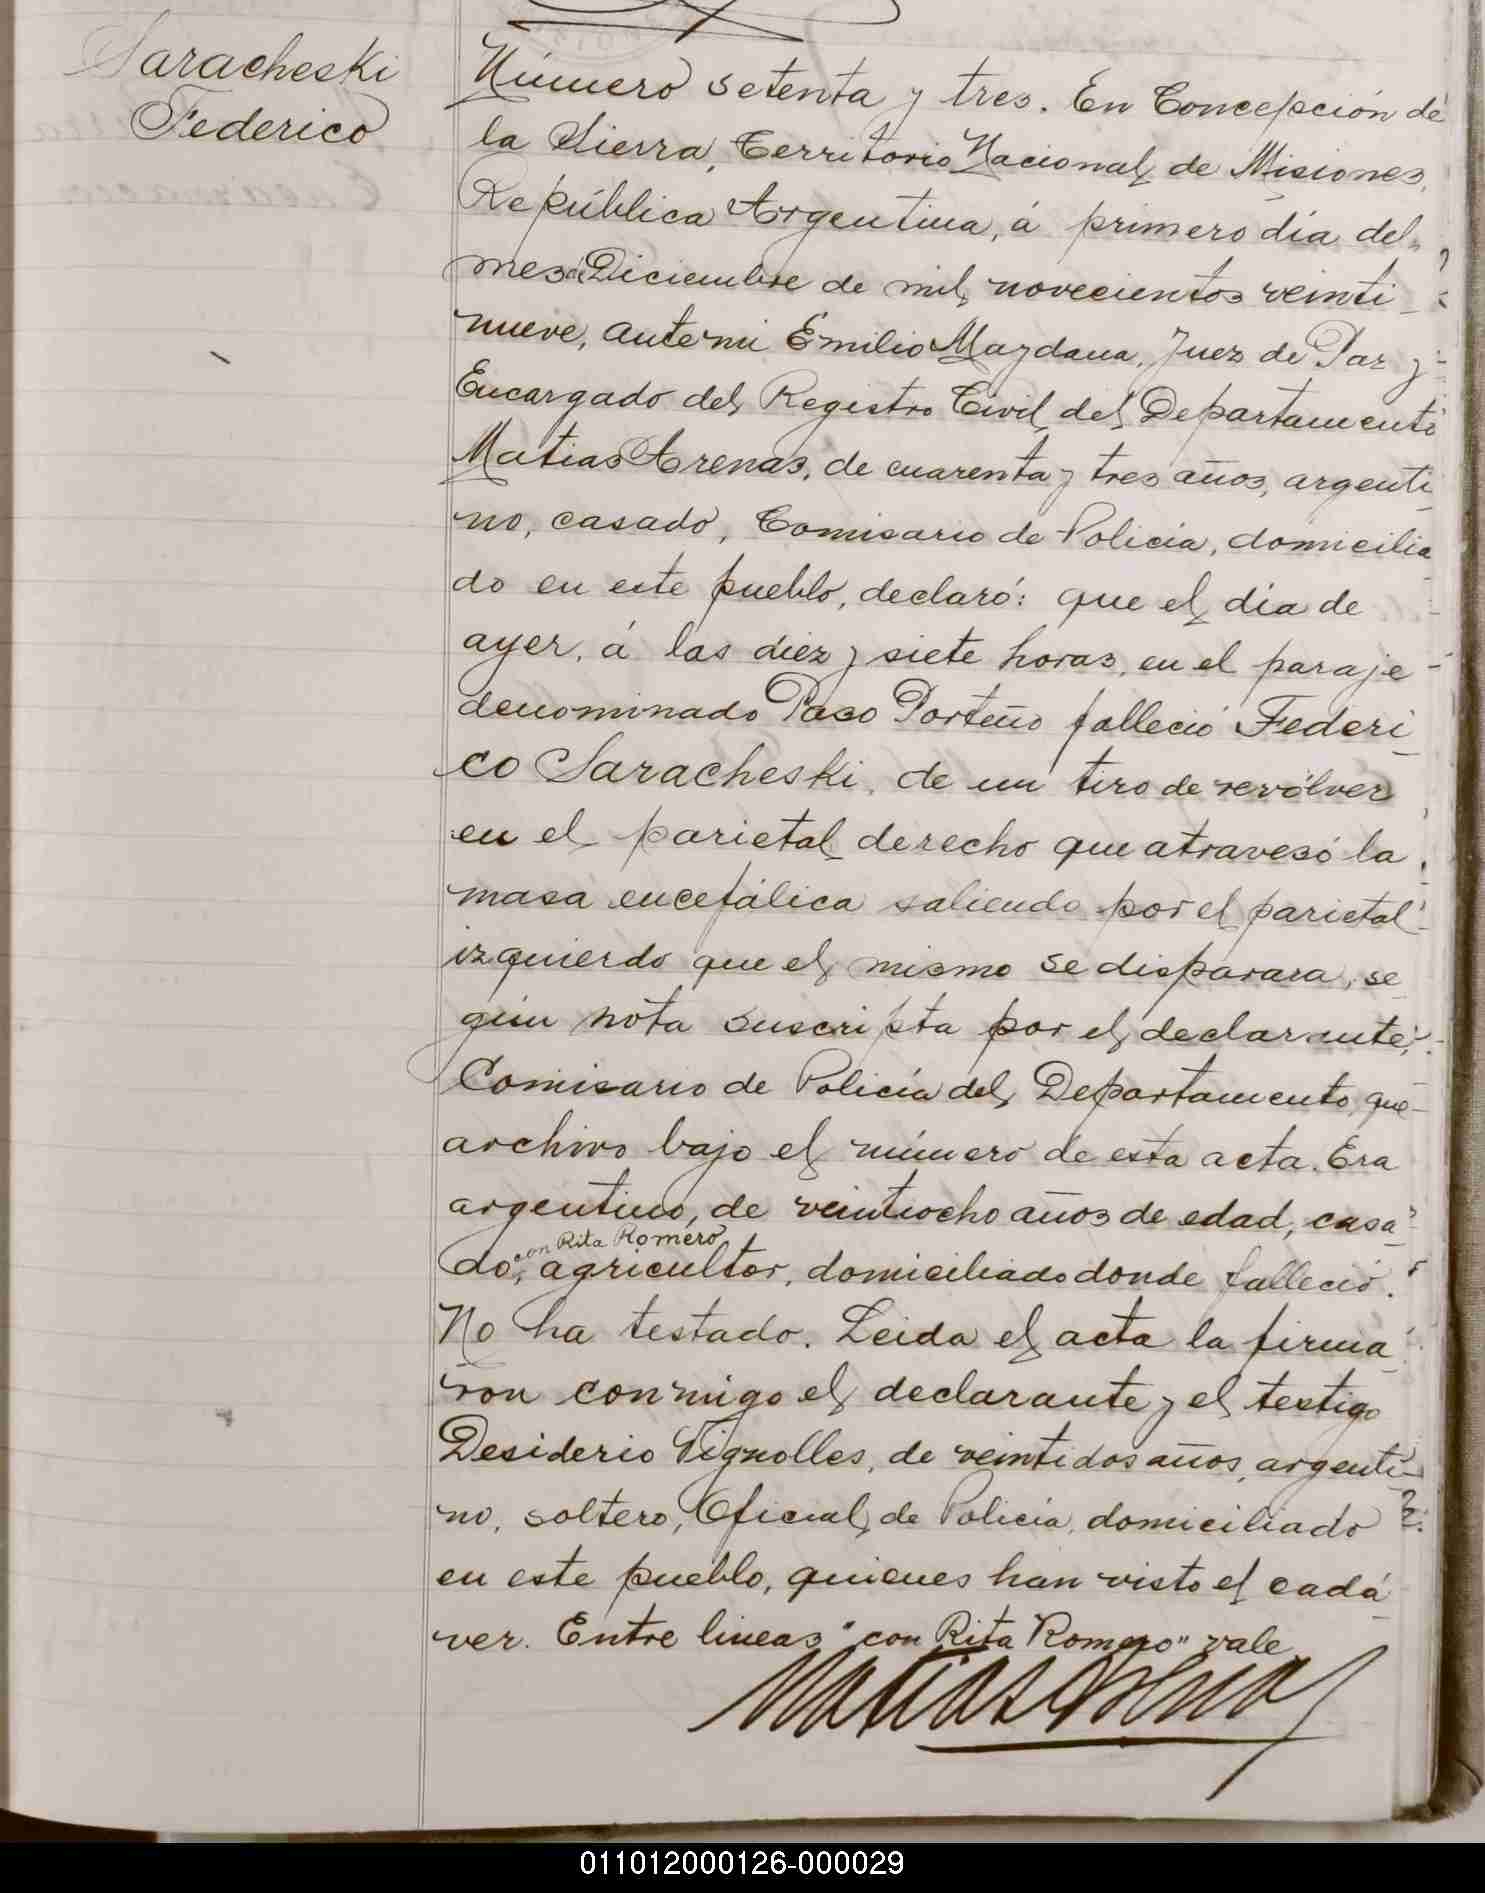 Saracheski
Federico
Número setenta y tres. En Concepción de
la Sierra, Territorio Nacional de Misiones,
República Argentina, á primero día del
mes de Diciembre de mil novecientos veinti
nueve, ante mi Emilio Maydana, Juez de Paz y
Encargado del Registro Civil del Departamento
Matias Arenas, de cuarenta y tres años, argenti
no, casado, Comisario de Policía, domicilia
do en este pueblo, declaró: que el día de
ayer, á las diez y siete horas, en el paraje
denominado Paso Porteño falleció Federi
co Saracheski, de un tiro de revólver
en el parietal derecho que atravesó la
masa encefálica saliendo por el parietal
izquierdo que el mismo se disparara, se
gún nota suscripta por el declarante,
Comisario de Policía del Departamento, que
archivo bajo el número de esta acta. Era
argentino, de veintiocho años de edad, casa
con Rita Romero
do, agricultor, domiciliado donde falleció.
No ha testado. Leida el acta la firma
ron conmigo el declarante y el testigo
Desiderio Vignolles, de veintidos años, argenti
no, soltero, Oficial de Policía, domiciliado
en este pueblo, quienes han visto el cadá
ver. Entre lineas "con Rita Romero" vale
Matias Arenas
011012000126-000029